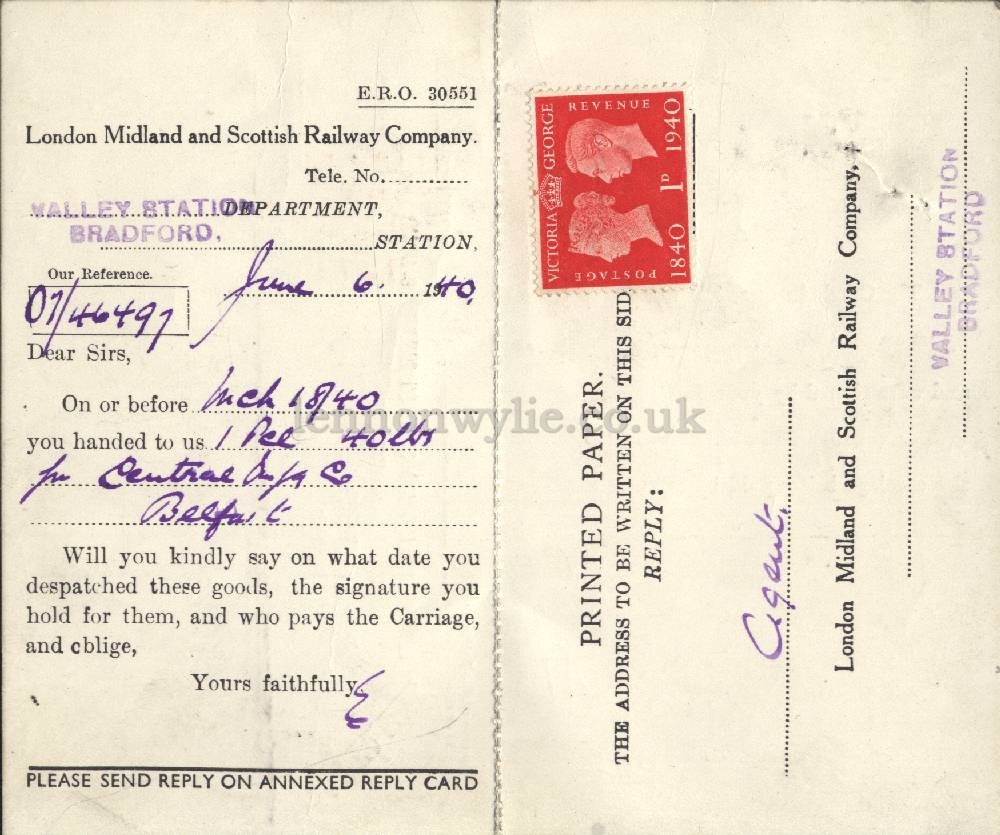 E.R.O. 30551
London Midland and Scottish Railway Company.
Tele. No.
VALLEY STATION DEPARTMENT,
BRADFORD. STATION,
Our Reference. June 6. 1940.
07/46497
Dear Sirs,
On or before Mch 18/40
you handed to us 1 Pcl 40lbs
for Central Co
Belfast
Will you kindly say on what date you
despatched these goods, the signature you
hold for them, and who pays the Carriage,
and oblige,
Yours faithfully,
PLEASE SEND REPLY ON ANNEXED REPLY CARD
VICTORIA GEORGE
REVENUE
1840 1D 1940
POSTAGE
PRINTED PAPER.
THE ADDRESS TO BE WRITTEN ON THIS SID
REPLY:
Agent.
London Midland and Scottish Railway Company,
VALLEY STATION
BRADFORD
lennonwylie.co.uk